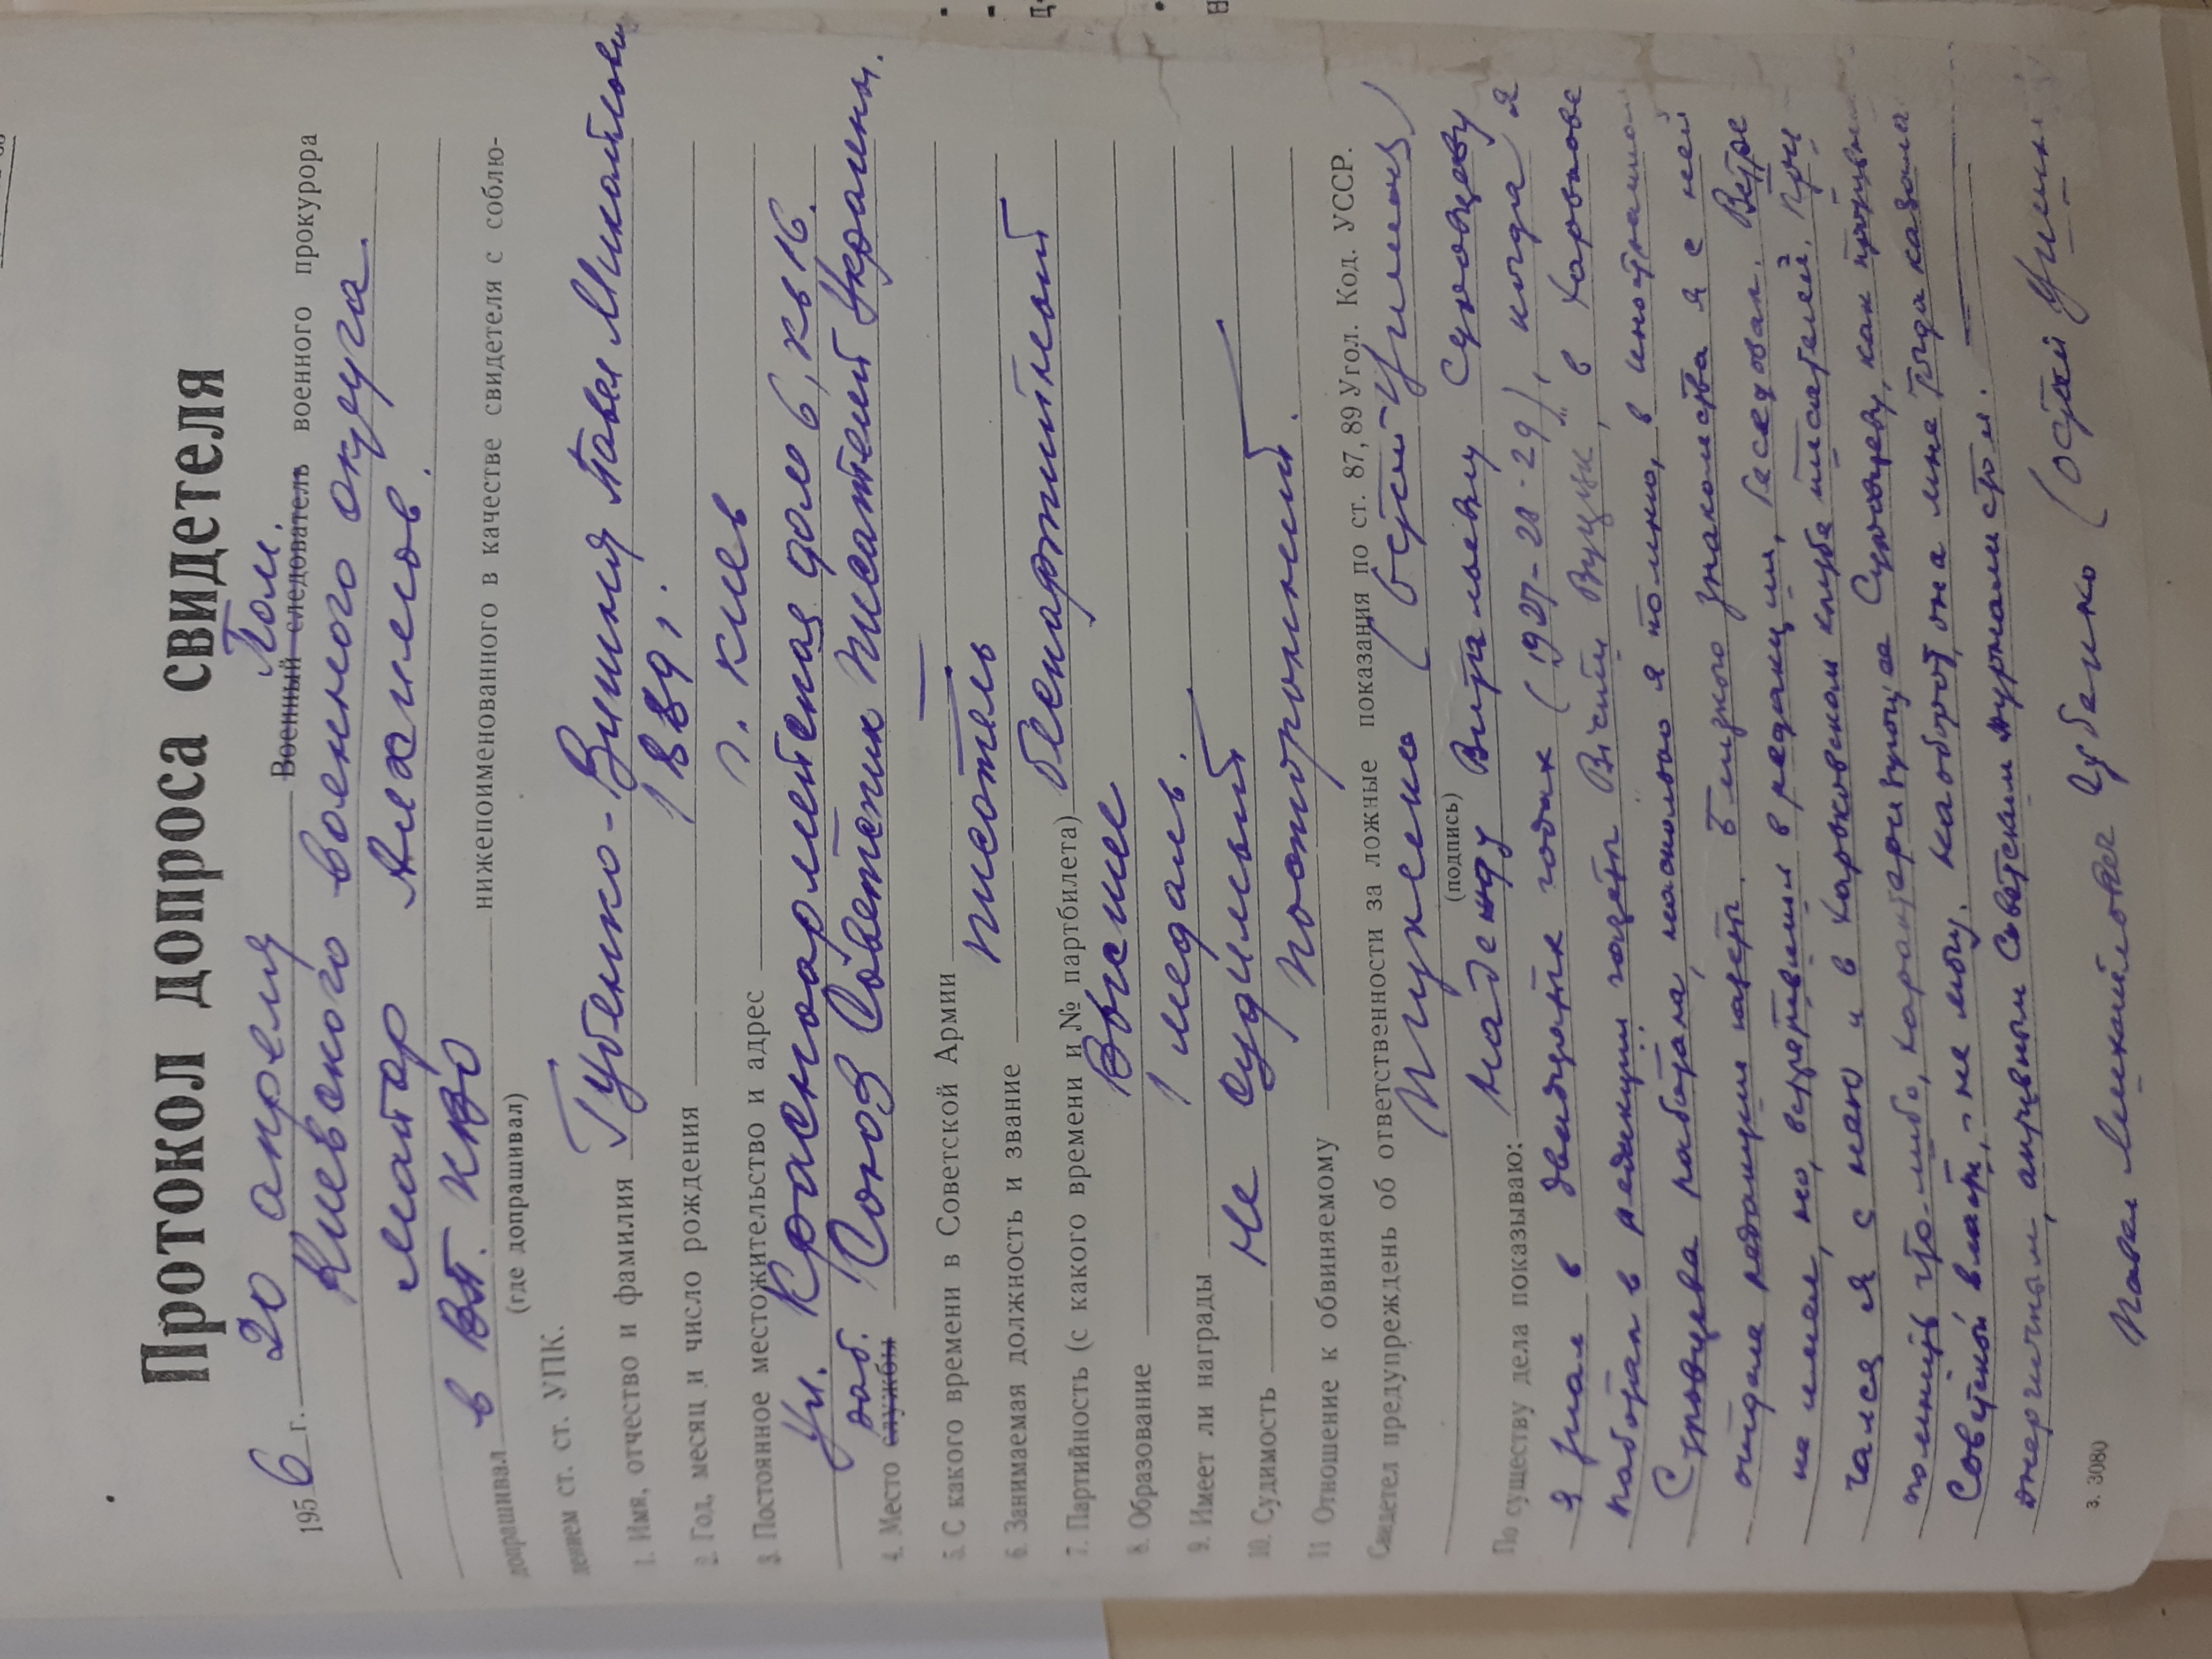 Протокол допроса свидетеля
1956 г. 20 апреля Военный следователь Пом. военного прокурора
Киевского военного округа
майор
в ВП. КВО
допрашивал нижепоименованного в качестве свидетеля с соблю-
(где допрашивал)
дением ст. ст. УПК.
1. Имя, отчество и фамилия Губенко-Вишня Павел Михайлович
2. Год, месяц и число рождения 1889 г.
3. Постоянное местожительство и адрес г. Киев
ул. Красноармейская дом 6, кв 16.
4. Место службы раб. Союз Советских Писателей Украины.
5. С какого времени в Советской Армии —
6. Занимаемая должность и звание писатель
7. Партийность (с какого времени и № партбилета) беспартийный
8. Образование Высшее
9. Имеет ли награды 1 медаль.
10. Судимость Не судимый
11 Отношение к обвиняемому Посторонний.
Свидетел предупреждень об ответственности за ложные показания по ст. 87, 89 Угол. Код. УССР.
(подпись)
По существу дела показываю: Надежду Витальевну Суровцову
я знал в двадцатых годах (1927-28-29), когда я
работал в редакции газеты „Вісти ВУЦИК" в Харькове
Суровцева работала, насколько я помню, в иностранном
отделе редакции газеты. Близкого знакомства я с ней
не имел, но, встретившись в редакции, беседовал. Встре
чался я с нею и в Харьковском клубе писателей.
помнить что-либо, характеризующее Суровцеву, как противн
Советской власти, - не могу. Наоборот, она мне тогда казалась
энергичным, активным Советским журналистом.
Павел Михайлович Губенко (Остап Вишня)
З. 3080